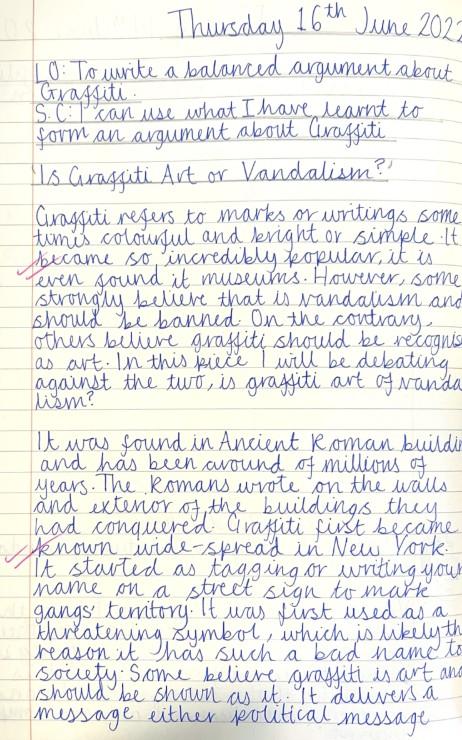 Thursday 16th June 2022
LO: To write a balanced argument about
Graffiti.
S.C: I can use what I have learnt to
form an argument about Graffiti
'Is Graffiti Art or Vandalism?'
Graffiti refers to marks or writings some
times colourful and bright or simple. It
became so incredibly popular, it is
even found it museums. However, some
strongly believe that is vandalism and
should be banned. On the contrary,
others believe graffiti should be recognis
as art. In this piece I will be debating
against the two, is graffiti art of vanda
lism?
It was found in Ancient Roman buildin
and has been around of millions of
years. The Romans wrote on the walls
and exterior of the buildings they
had conquered. Graffiti first became
known wide-spread in New York.
It started as tagging or writing your
name on a street sign to mark
gangs' territory. It was first used as a
threatening symbol, which is likely th
reason it has such a bad name to
society. Some believe graffiti is art and
should be shown as it. It delivers a
message either political message